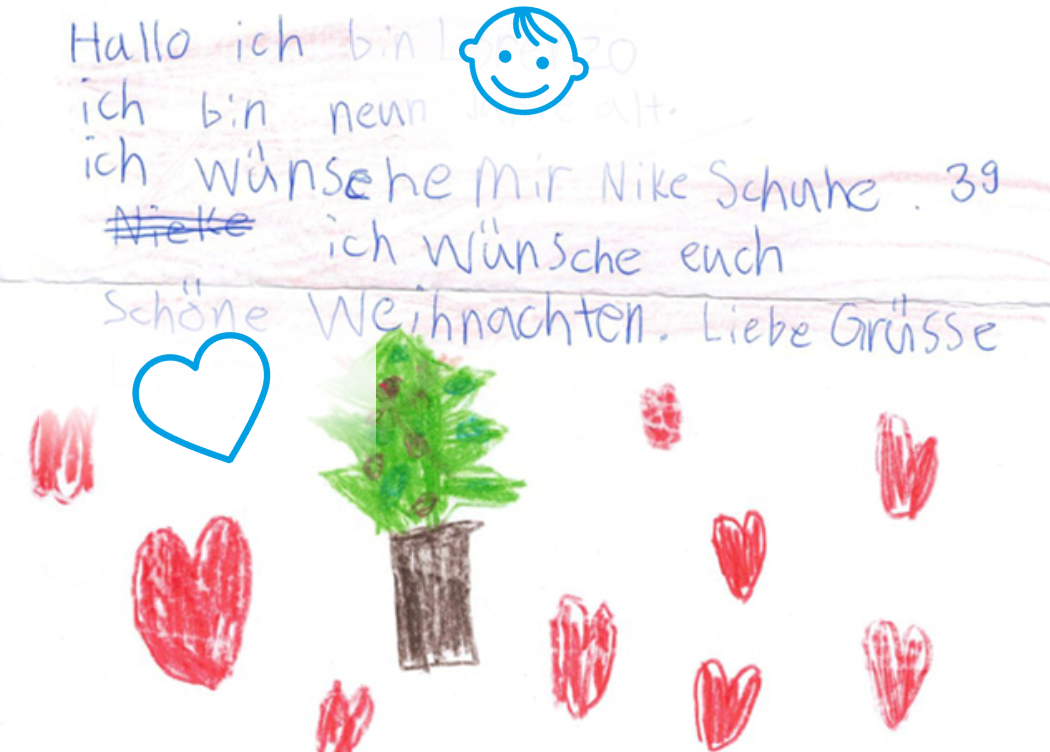 Hallo ich bin
ich bin neun alt.
ich wünsche mir Nike Schuhe. 39
Nieke ich wünsche euch
Schöne Weihnachten. Liebe Grüsse